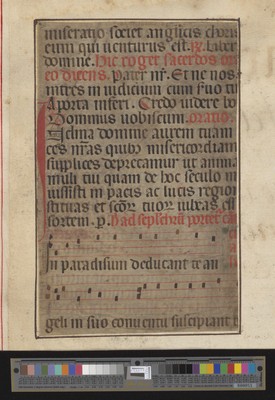 miseratio societ angelicis choris
eum qui uenturus est. R. Liber
domine. Hic roget sacerdos or
eo dicens. Pater nr. Et ne nos
intres in iudicium cum suo tu
A porta inferi. Credo uidere bo
Dominus uobiscum. oratio.
clina domine aurem tuam
ces nras quibus misericordiam
supplices deprecamur ut anim
muli tui quam de hoc seculo m
iussisti in pacis ac lucis region
stituas et scor tuor iubeas es
sortem. p. Ad sepulchrum portet
In paradisum deducant te an
geli in suo conuentu suscipiant